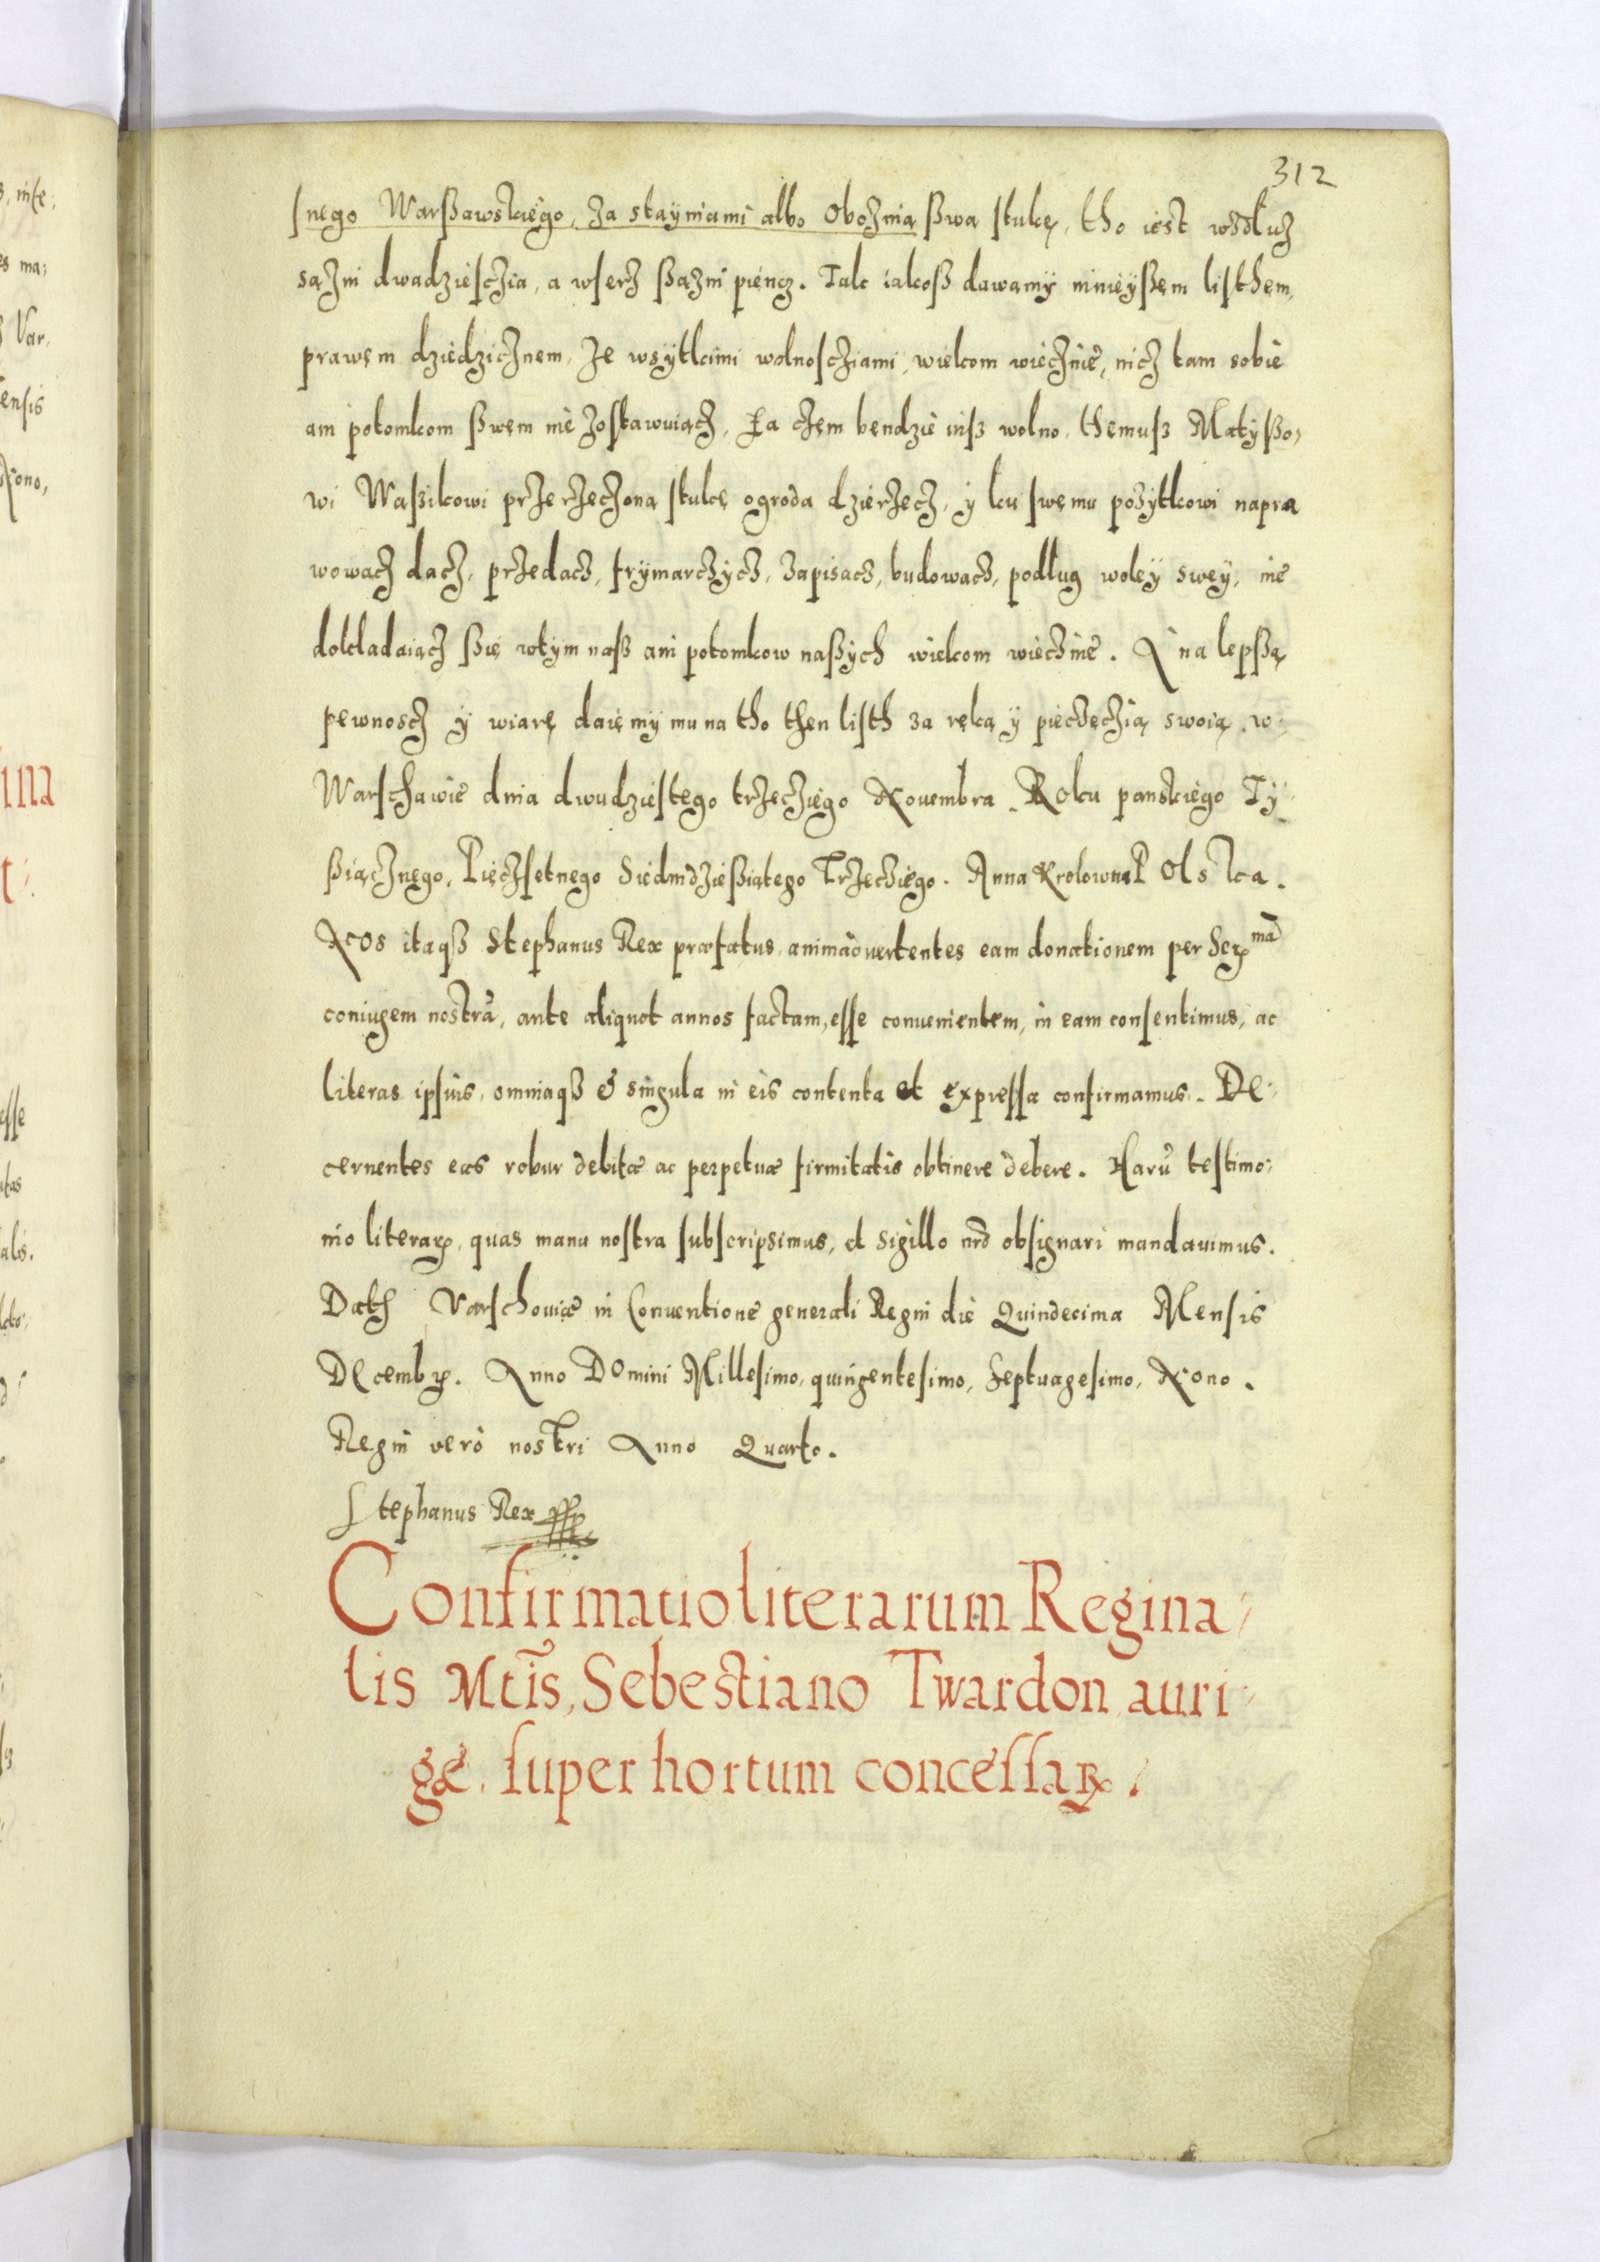 312
snego Warßawskiego, za staÿniami albo Oboznią ßwą stukę, tho iest wzdłuz
sązni dwadziesczia, a wserz ßązni piencz. Tak iakoß dawamÿ ninieÿßem listhem,
prawem dziedzicznem, ze wsÿtkimi wolnosczíami, wiekom wiecznie, nicz tam sobie
ani potomkom ßwem nie zostawuiącz. Za czem bendzie iuß wolno, themuß Matÿßo,
wi Waßilkowi przerzeczoną stukę ogroda dzierzecz, ÿ ku swemu pozÿtkowi napra
wowacz dacz, przedacz, frÿmarczÿcz, zapisacz, budowacz, podług woleÿ sweÿ, nie
dokładaiącz ßię wtÿm naß ani potomkow naßÿch wiekom wiecznie. A na lepßą
pewnoscz ÿ wiarę daięmÿ mu na tho then listh za ręką ÿ pieczęczią swoią. w
Warschawie dnia dwudziestego trzecziego Nouembra. Roku panskiego Tÿ
ßiącznego, Pięczsetnego Siedmdzießiątego Trzecziego. Anna Krolowna Polska.
Nos itaqȝ Stephanus Rex præfatus, animaduertentes eam donationem per Serꝫ mã
coniugem nostrã, ante aliquot annos factam, esse conuenientem, in eam consentimus, ac
literas ipsius, omniaqȝ & singula in eis contenta et expressa confirmamus. De:
cernentes eas robur debitæ ac perpetuæ firmitatis obtinere debere. Harũ testimo:
nio literaꝝ, quas manu nostra subscripsimus, et sigillo nrõ obsignari mandauimus.
Datȝ Varschouiæ in Conuentione generali Regni die Quindecima Mensis
Decembꝝ. Anno Domini Millesimo, quingentesimo, Septuagesimo, Nono.
Regni verò nostri Anno Quarto.
Stephanus Rex
Confirmatio literarum Regina-
lis Mtis, Sebestiano Twardon auri-
gæ, super hortum concessaꝝ.